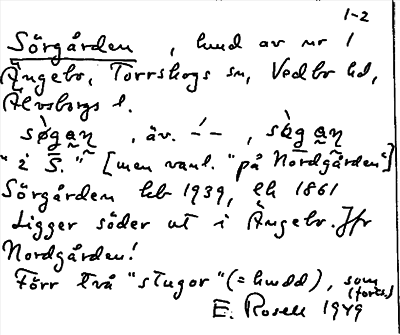 1-2
Sörgården, hmd av nr 1
Ängebo, Torrskogs sn, Vedbo hd,
Älvsborgs l.
sø̀gan̥, äv. –́–, sɑ̀gan̥
"i S." [men vanl. "på Nordgården"]
Sörgården hb 1939, ek 1861
Ligger söder ut i Ängebo. Jfr
Nordgården!
Förr två "stugor" (= hmdd), som
(forts.)
E. Rosell 1949